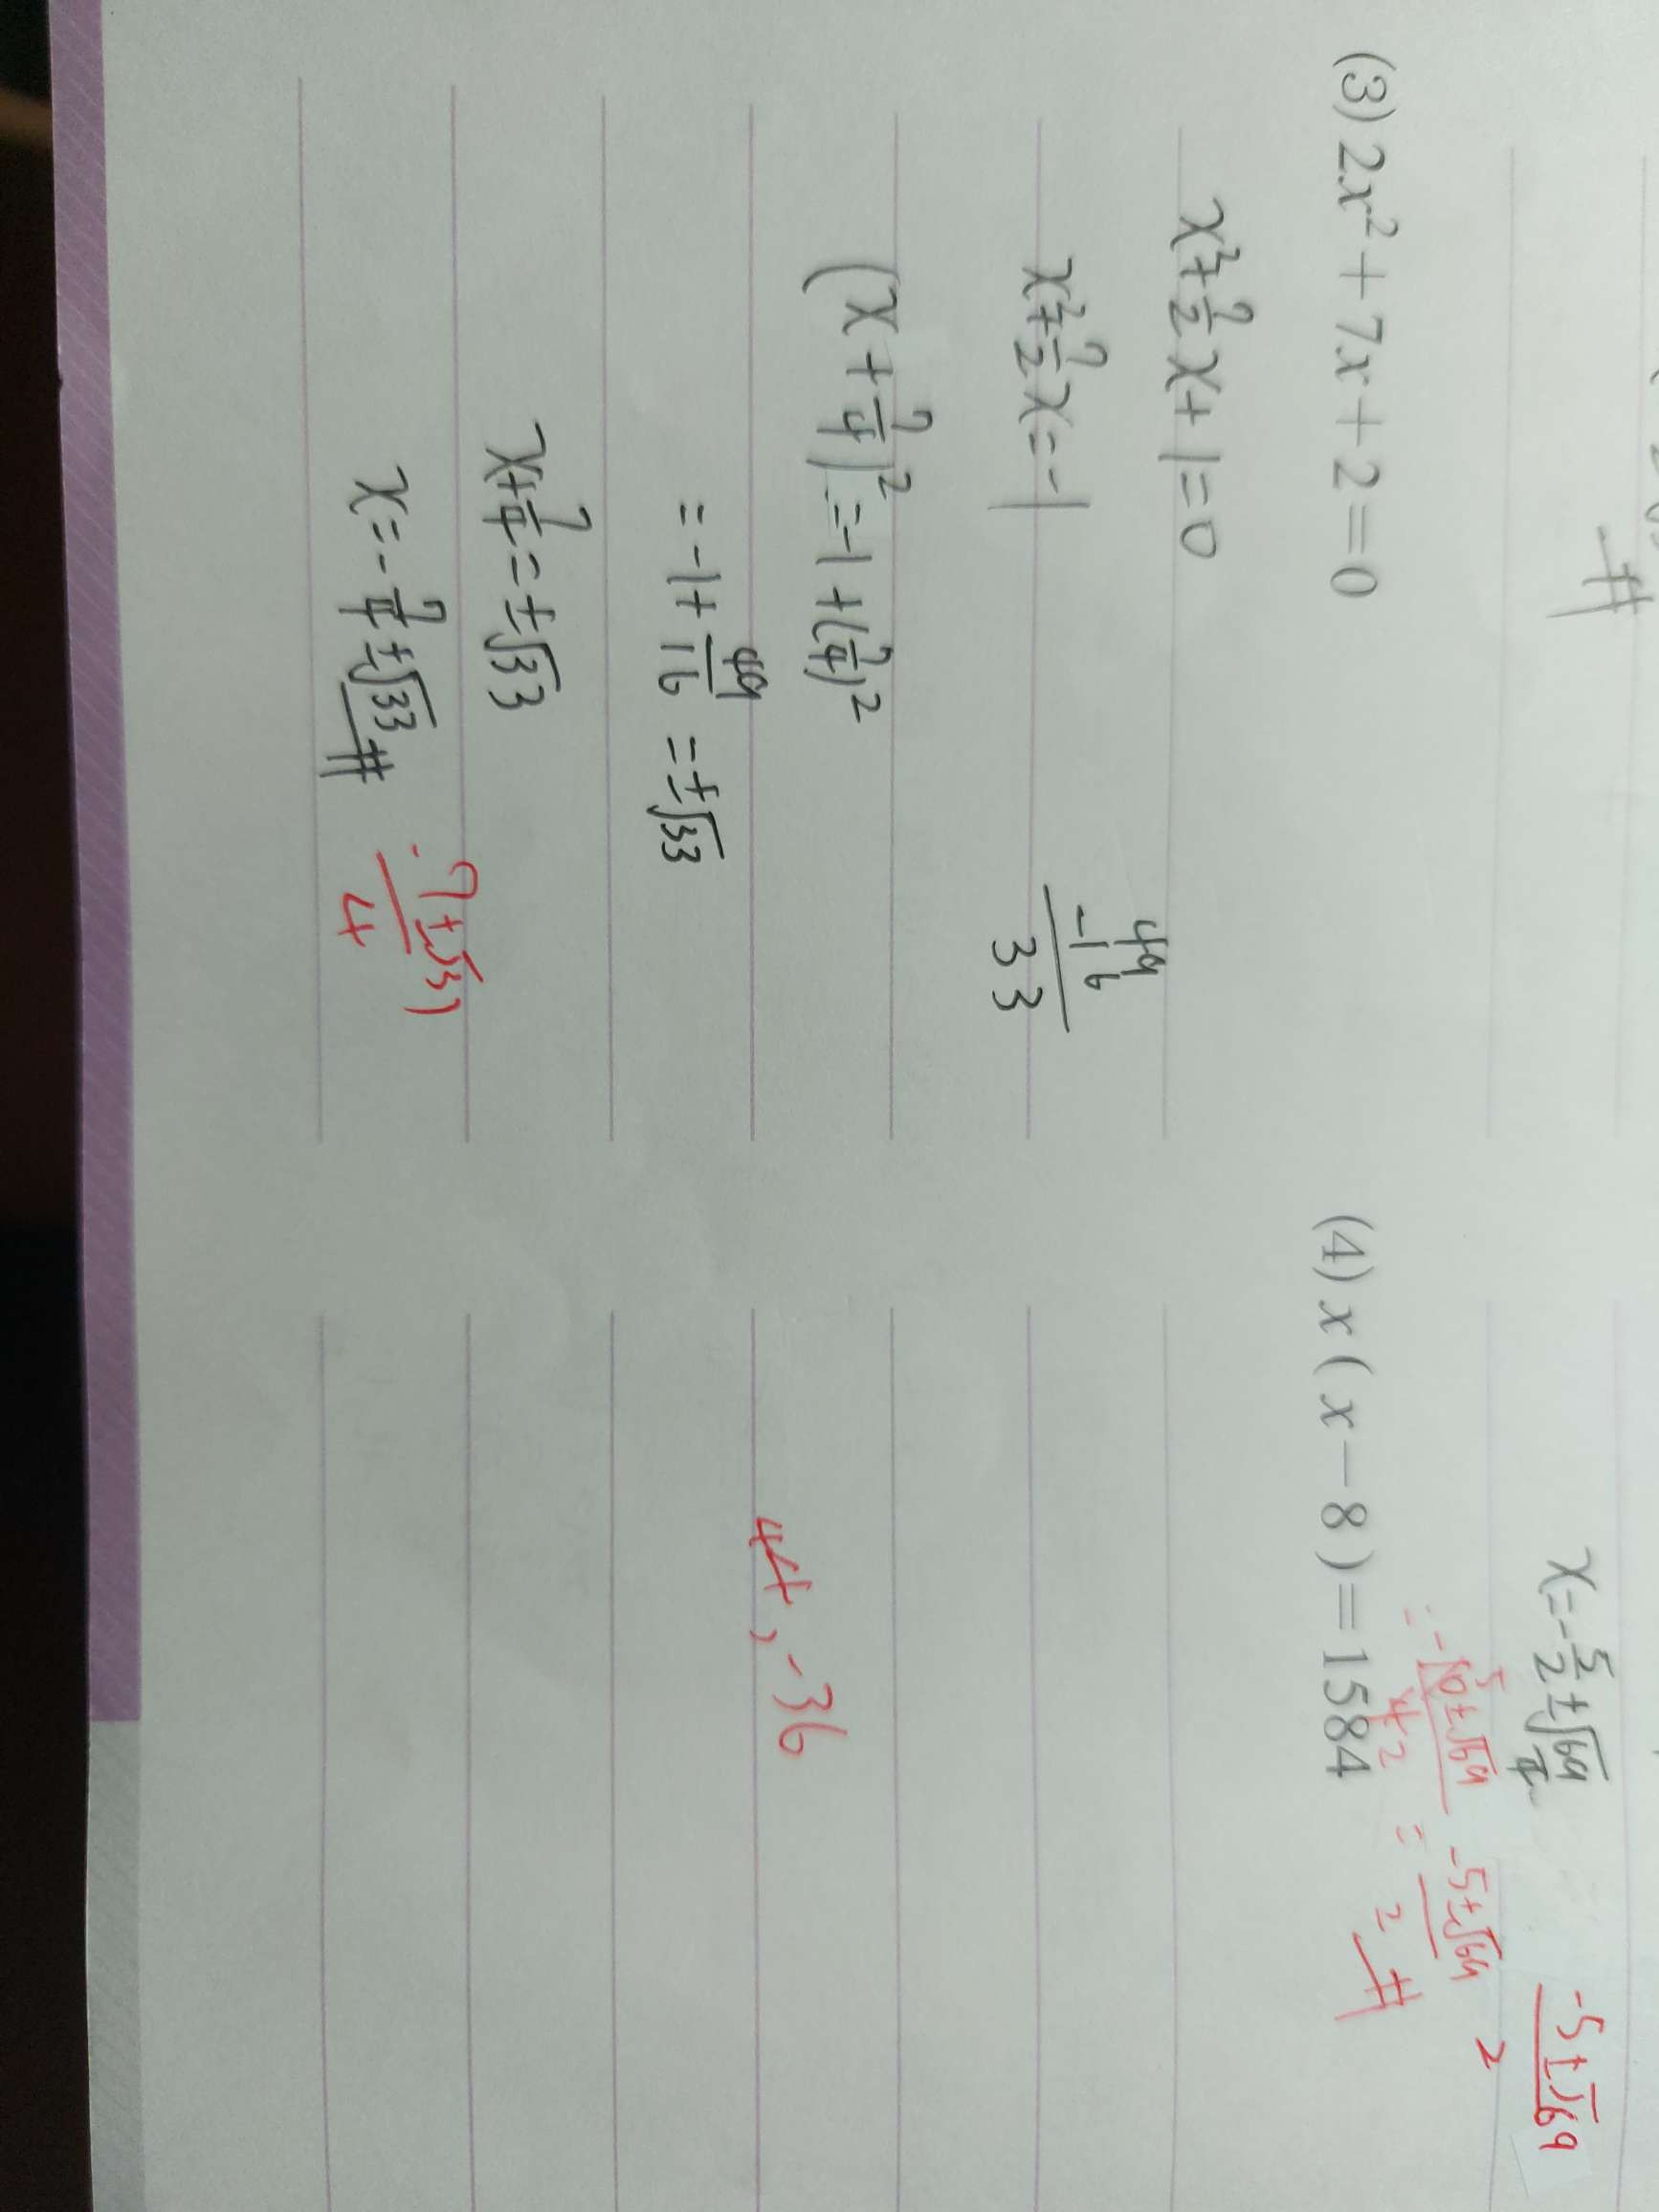 x=-5/2±√69/4
-5±√69
2
-10±√69
5
4 2
= -5±√69
2
(3) 2x²+7x+2=0
x²+7/2x+1=0
x²+7/2x=-1
49
-16
33
(x+7/4)²=-1+(7/4)²
=-1+49/16=±√33
x+7/4=±√33
x=-7/4±√33
-7±√33
4
(4) x(x-8)=1584
44, -36